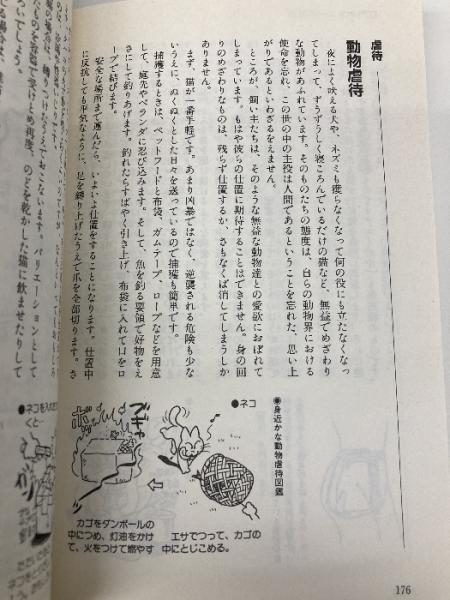 虐待
動物虐待
夜によく吠える犬や、ネズミも獲らなくなって何の役にも立たなくなっ
てしまって、ずうずうしく寝ころんでいるだけの猫など、無益でめざわり
な動物があふれています。そのものたちの態度は、自らの動物界における
使命を忘れ、この世の中の主役は人間であるということを忘れた、思い上
がりであるといわざるをえません。
ところが、飼い主たちは、そのような無益な動物達との愛欲におぼれて
しまっています。もはや彼らの仕置に期待することはできません。身の回
りのめざわりなものは、残らず仕置するか、さもなくば消してしまうしか
ありません。
まず、猫が一番手軽です。あまり凶暴ではなく、逆襲される危険も少な
いうえに、ぬくぬくとした日々を送っているので捕獲も簡単です。
捕獲するときは、ペットフードと布袋、ガムテープ、ロープなどを用意
して、庭先やベランダに忍び込みます。そして、魚を釣る要領で好物をえ
さにして釣りあげます。釣れたらすばやく引き上げ、布袋に入れて口をロ
ープで結びます。
安全な場所まで運んだら、いよいよ仕置をすることになります。仕置中
に反抗しても平気なように、足を縛り上げたうえで爪を全部切ります。さ
●身近かな動物虐待図鑑
●ネコ
ブギャ
ボッ
エサでつって、カゴの
中にとじこめる。
カゴをダンボールの
中につめ、灯油をかけ
て、火をつけて燃やす
176
たものを容器で受けとめ再度、のどを乾かした猫に飲ませたりして
●ネコを入れた